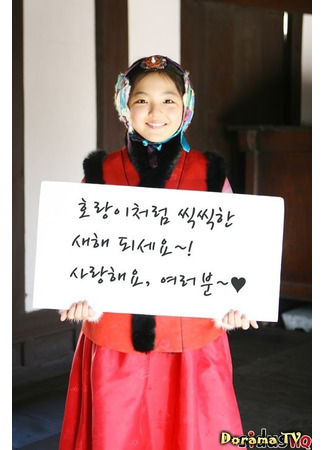 호랑이처럼 씩씩한
새해 되세요~!
사랑해요, 여러분~♥
Dorama TV